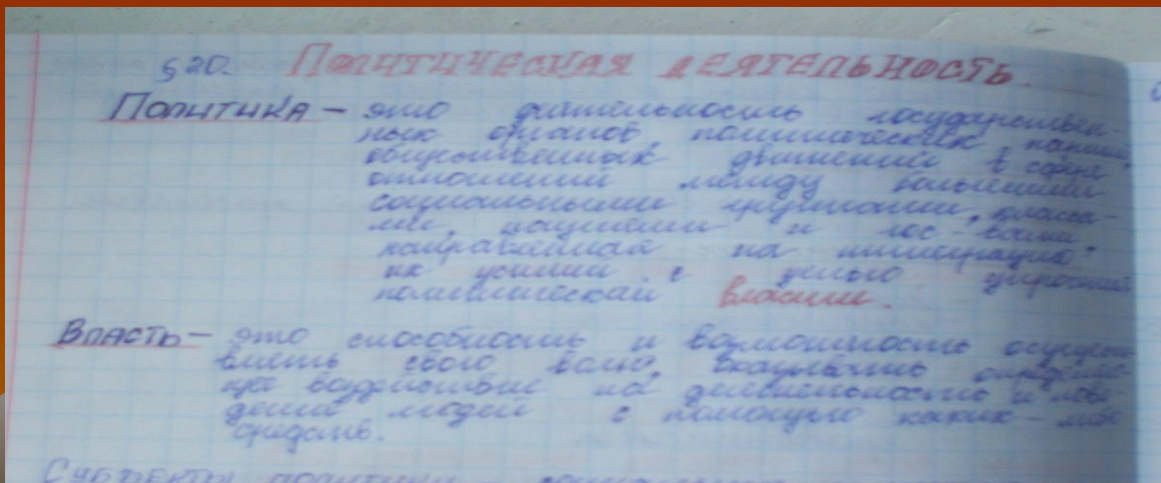 § 20. ПОЛИТИЧЕСКАЯ ДЕЯТЕЛЬНОСТЬ.
ПОЛИТИКА – это деятельность государствен-
ных органов политических партий,
общественных движений в сфере
отношений между большими
социальными группами, класса-
ми, нациями и гос-вами
направленная на интеграцию
их усилий с целью упрочения
политической власти.
ВЛАСТЬ – это способность и возможность осущест
влять свою волю, оказывать определён
ное воздействие на деятельность и пове
дение людей с помощью каких-либо
средств.
СУБЪЕКТЫ ПОЛИТИКИ –